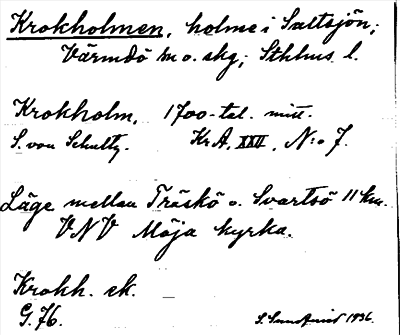 Krokholmen, holme i Saltsjön;
Värmdö m o. skg; Sthlms l.
Krokholm, 1700-tal. mitt.
S. von Schultz. Kr A, XXII, N:o 7.
Läge mellan Träskö o. Svartsö 11 km.
VNV Möja kyrka.
Krokh. ek.
G. 76. S. Sundquist 1936.